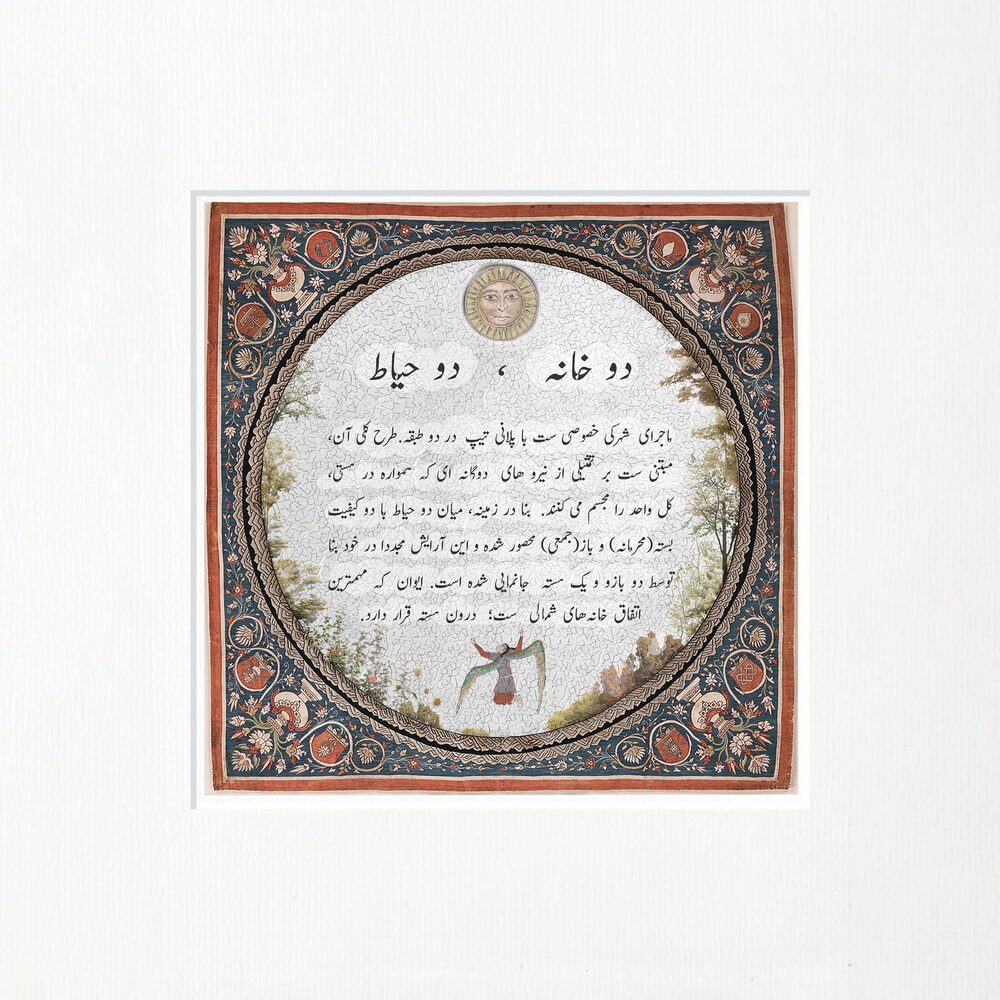 دو خانه ، دو حیاط
ماجرای شهرکی خصوصی ست با پلانی تیپ در دو طبقه.طرح کلی آن،
مبتنی ست بر تمثیلی از نیرو های دوگانه ای که همواره در هستی،
کل واحد را مجسم می کنند. بنا در زمینه، میان دو حیاط با دو کیفیت
بسته(محرمانه) و باز(جمعی) محصور شده و این آرایش مجددا در خود بنا
توسط دو بازو و یک هسته جانمایی شده است. ایوان که مهمترین
اتفاق خانه‌های شمالی ست؛ درون هسته قرار دارد.